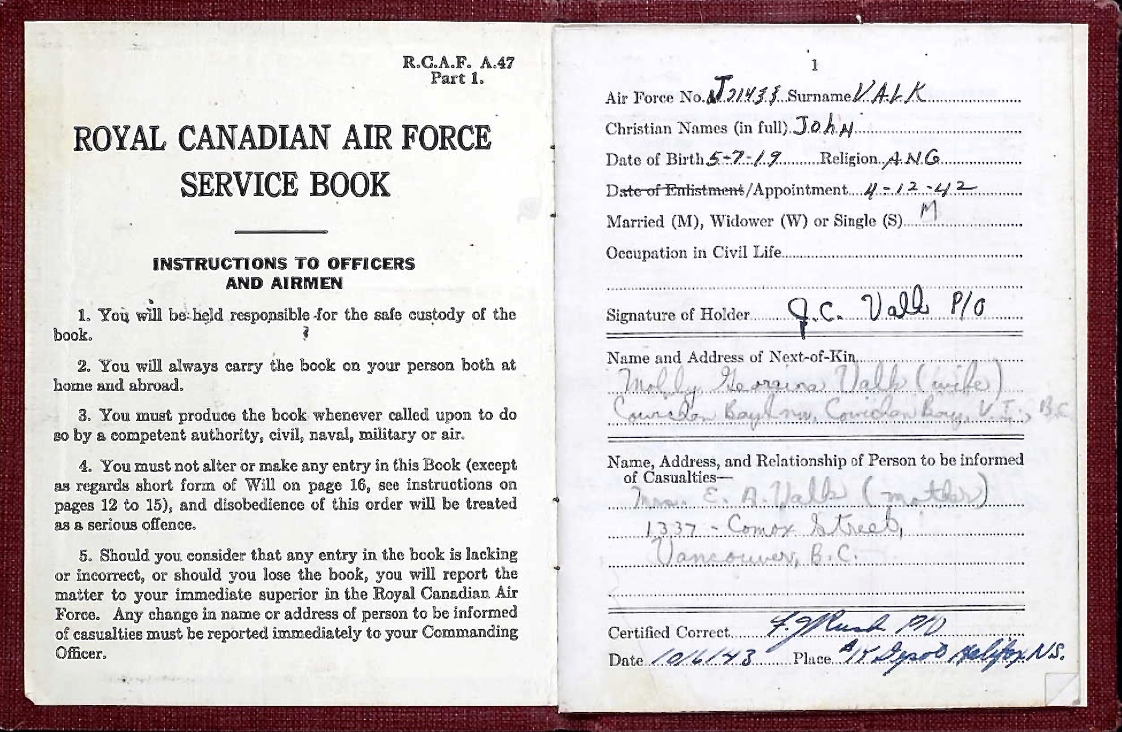 R.C.A.F. A.47
Part 1.
ROYAL CANADIAN AIR FORCE
SERVICE BOOK
INSTRUCTIONS TO OFFICERS
AND AIRMEN
1. You will be held responsible for the safe custody of the
book.
2. You will always carry the book on your person both at
home and abroad.
3. You must produce the book whenever called upon to do
so by a competent authority, civil, naval, military or air.
4. You must not alter or make any entry in this Book (except
as regards short form of Will on page 16, see instructions on
pages 12 to 15), and disobedience of this order will be treated
as a serious offence.
5. Should you consider that any entry in the book is lacking
or incorrect, or should you lose the book, you will report the
matter to your immediate superior in the Royal Canadian Air
Force. Any change in name or address of person to be informed
of casualties must be reported immediately to your Commanding
Officer.
1
Air Force No. Surname VALK
Christian Names (in full) John
Date of Birth 5-7-19 Religion ANG
Date of Enlistment/Appointment 4-12-42
Married (M), Widower (W) or Single (S) M
Occupation in Civil Life
Signature of Holder J.C. Valk P/O
Name and Address of Next-of-Kin
Molly Georgina Valk (wife)
Cowichan Bay Inn, Cowichan Bay, V.I., B.C.
Name, Address, and Relationship of Person to be informed
of Casualties—
Mrs. E. A. Valk (mother)
1337 - Comox Street,
Vancouver, B.C.
Certified Correct P/O
Date 10/6/43 Place Depot Halifax N.S.